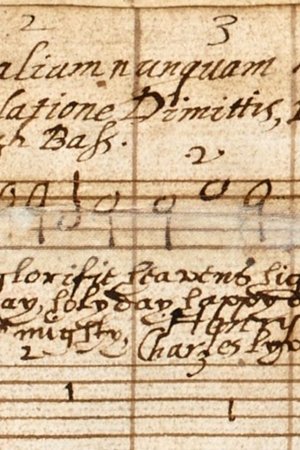 2 3
alium nunquam
latione, Dimittis,
Bass.
2
glorifie heavens
ay, holy day, happy
mighty,
2 Charles